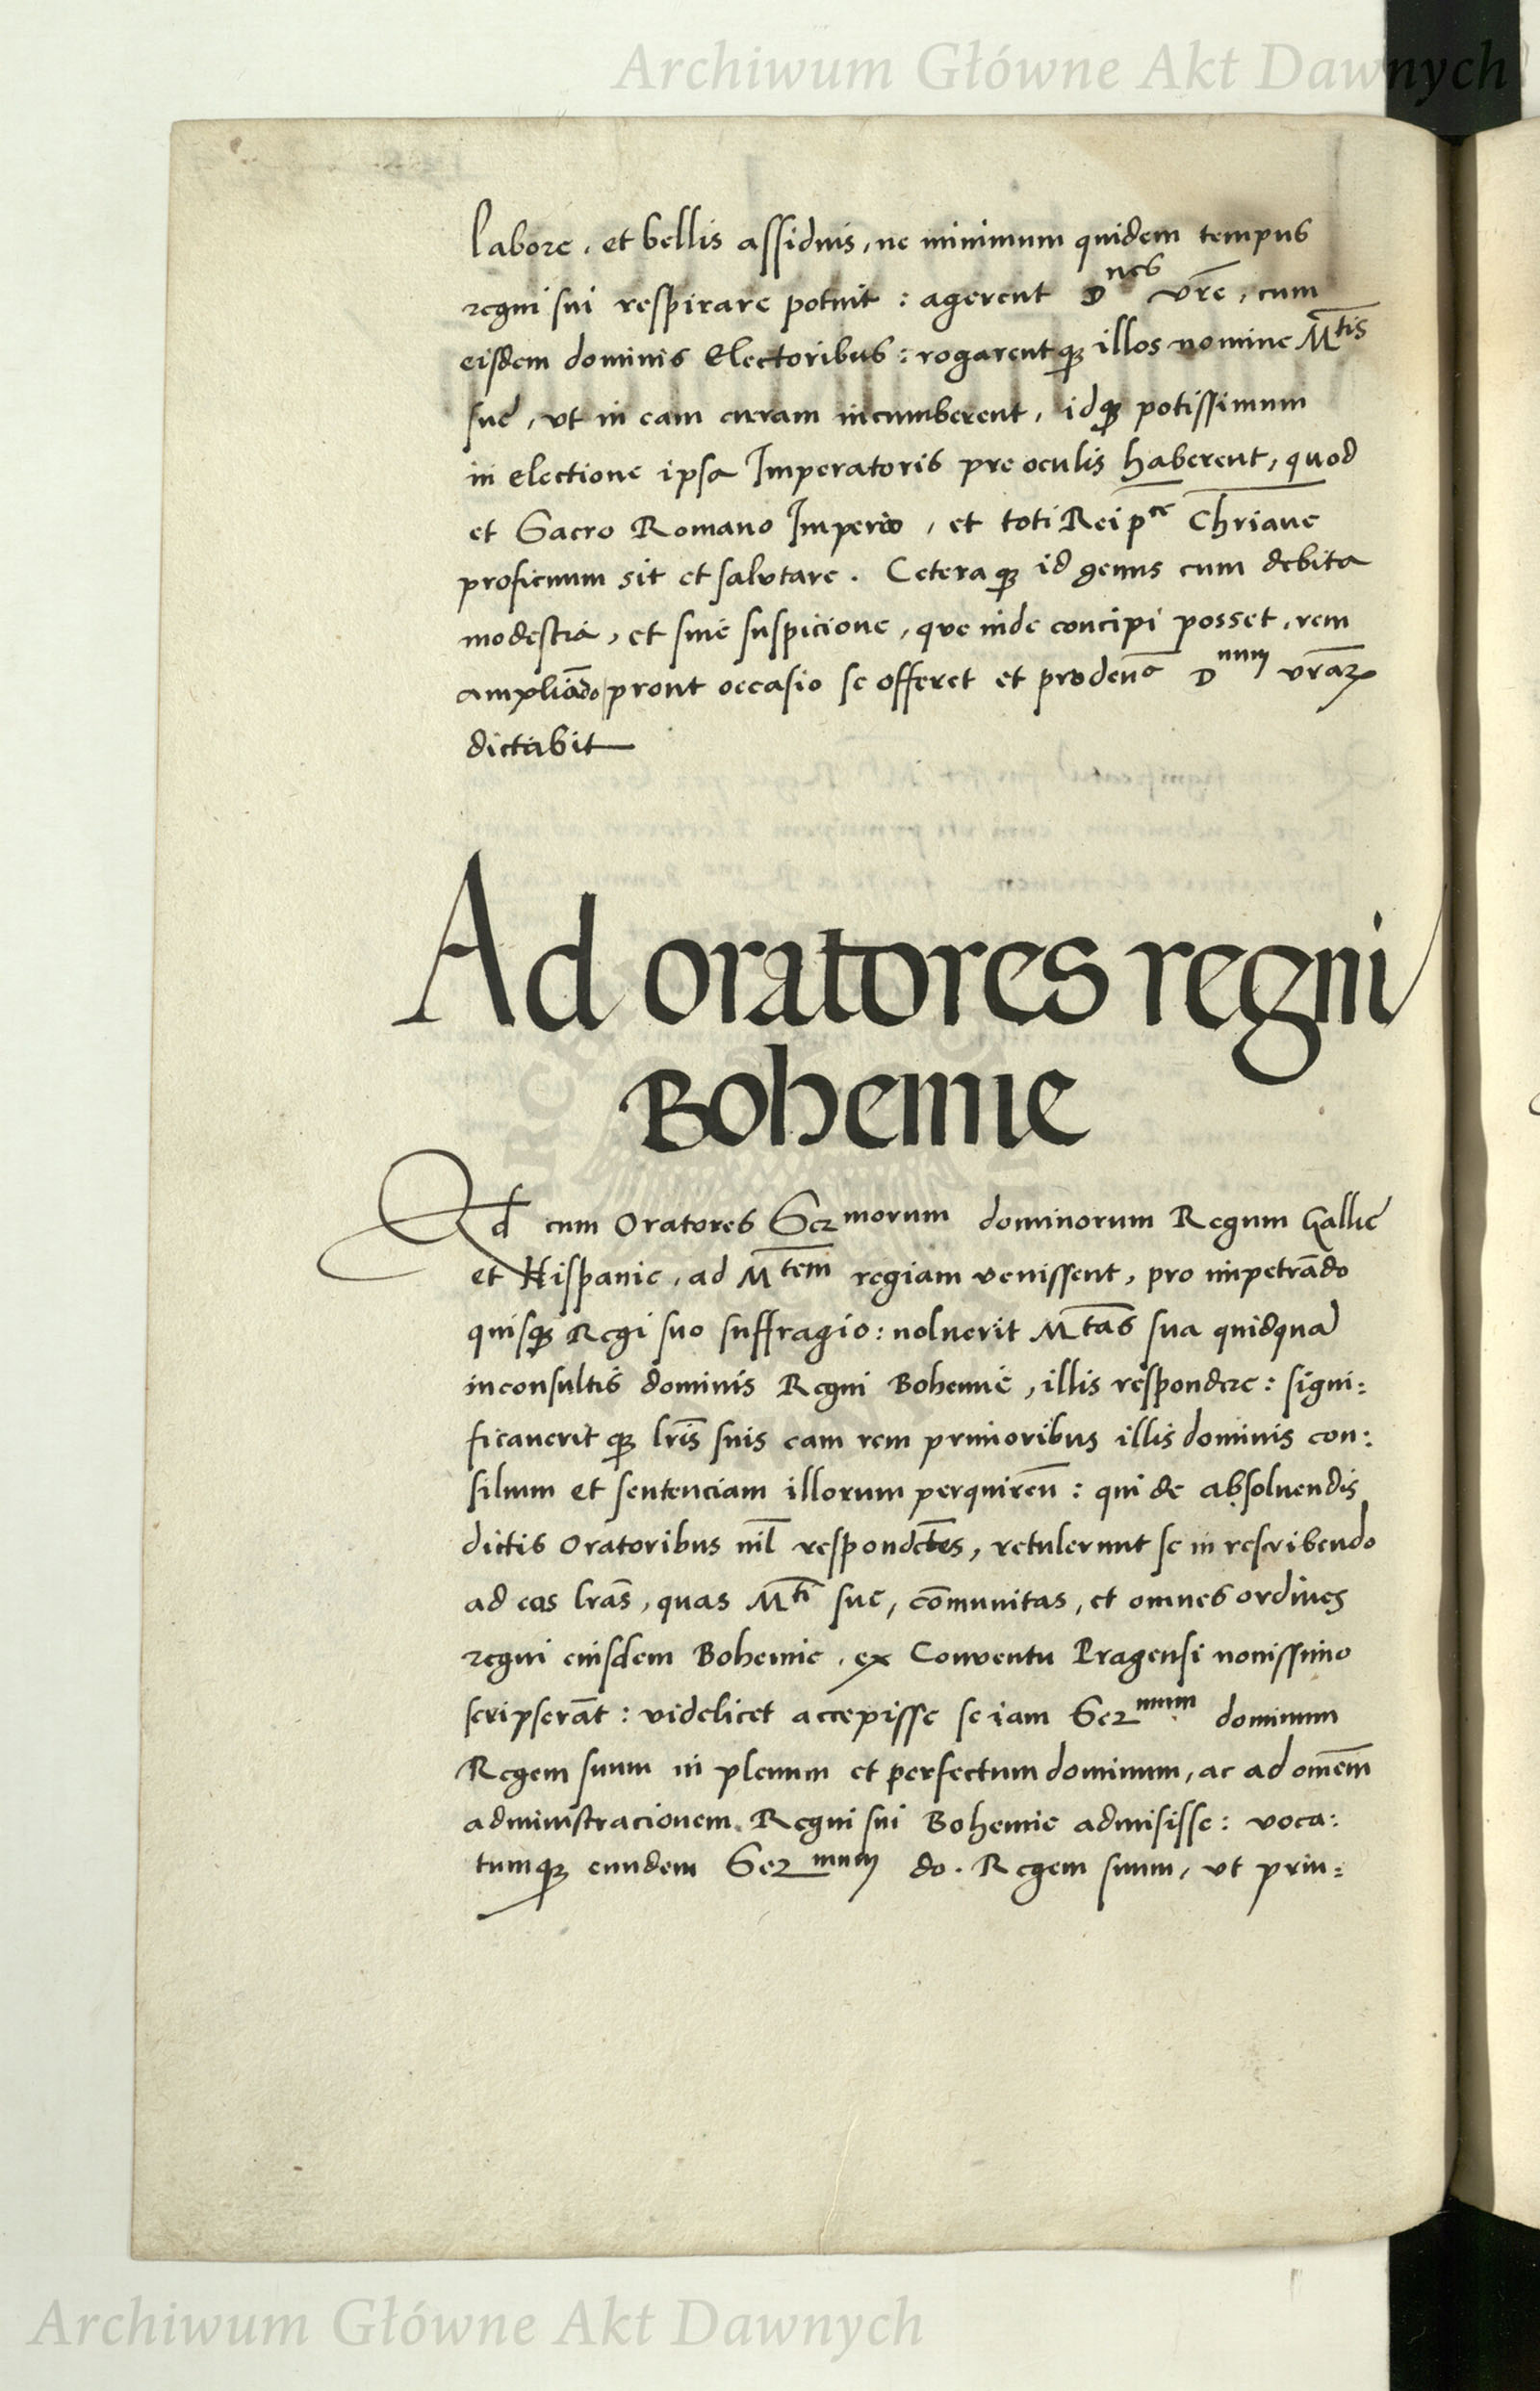 Archiwum Główne Akt Dawnych
labore, et bellis assiduis, ne minimum quidem tempus
regni sui respirare potuit : agerent D^nes vr̄e, cum
eisdem dominis Electoribus : rogarentq; illos nomine M^tis
sue, vt in eam curam incumberent, idq; potissimum
in electione ipsa Imperatoris pre oculis haberent, quod
et Sacro Romano Imperio, et toti Reip^ce Chr̄iane
proficuum sit et salutare. Ceteraq; id genus cum debita
modestia, et sine suspicione, que inde concipi posset, rem
ampliādo prout occasio se offeret et prudenc̄ D^num vr̄aꝝ
dictabit
Ad oratores regni
Bohemie
Qd cum Oratores Ser^morum dominorum Regum Gallie
et Hispanie, ad M^tem regiam venissent, pro impetrādo
quisq; Regi suo suffragio : noluerit M^tas sua quidquā
inconsultis dominis Regni Bohemie, illis respondere : signi:
ficaueritq; lr̄is suis eam rem primoribus illis dominis con:
silium et sentenciam illorum perquiren̄ : qui de absoluendis
dictis Oratoribus nil̄ respondētes, retulerunt se in rescribendo
ad eas lr̄as, quas M^ti sue, cōmunitas, et omnes ordines
regni eiusdem Bohemie, ex Conventu Pragensi nouissimo
scripserāt : videlicet accepisse se iam Ser^mum dominum
Regem suum in plenum et perfectum dominum, ac ad omēm
administracionem Regni sui Bohemie admisisse : voca:
tumq; eundem Ser^mum do. Regem suum, vt prin:
Archiwum Główne Akt Dawnych